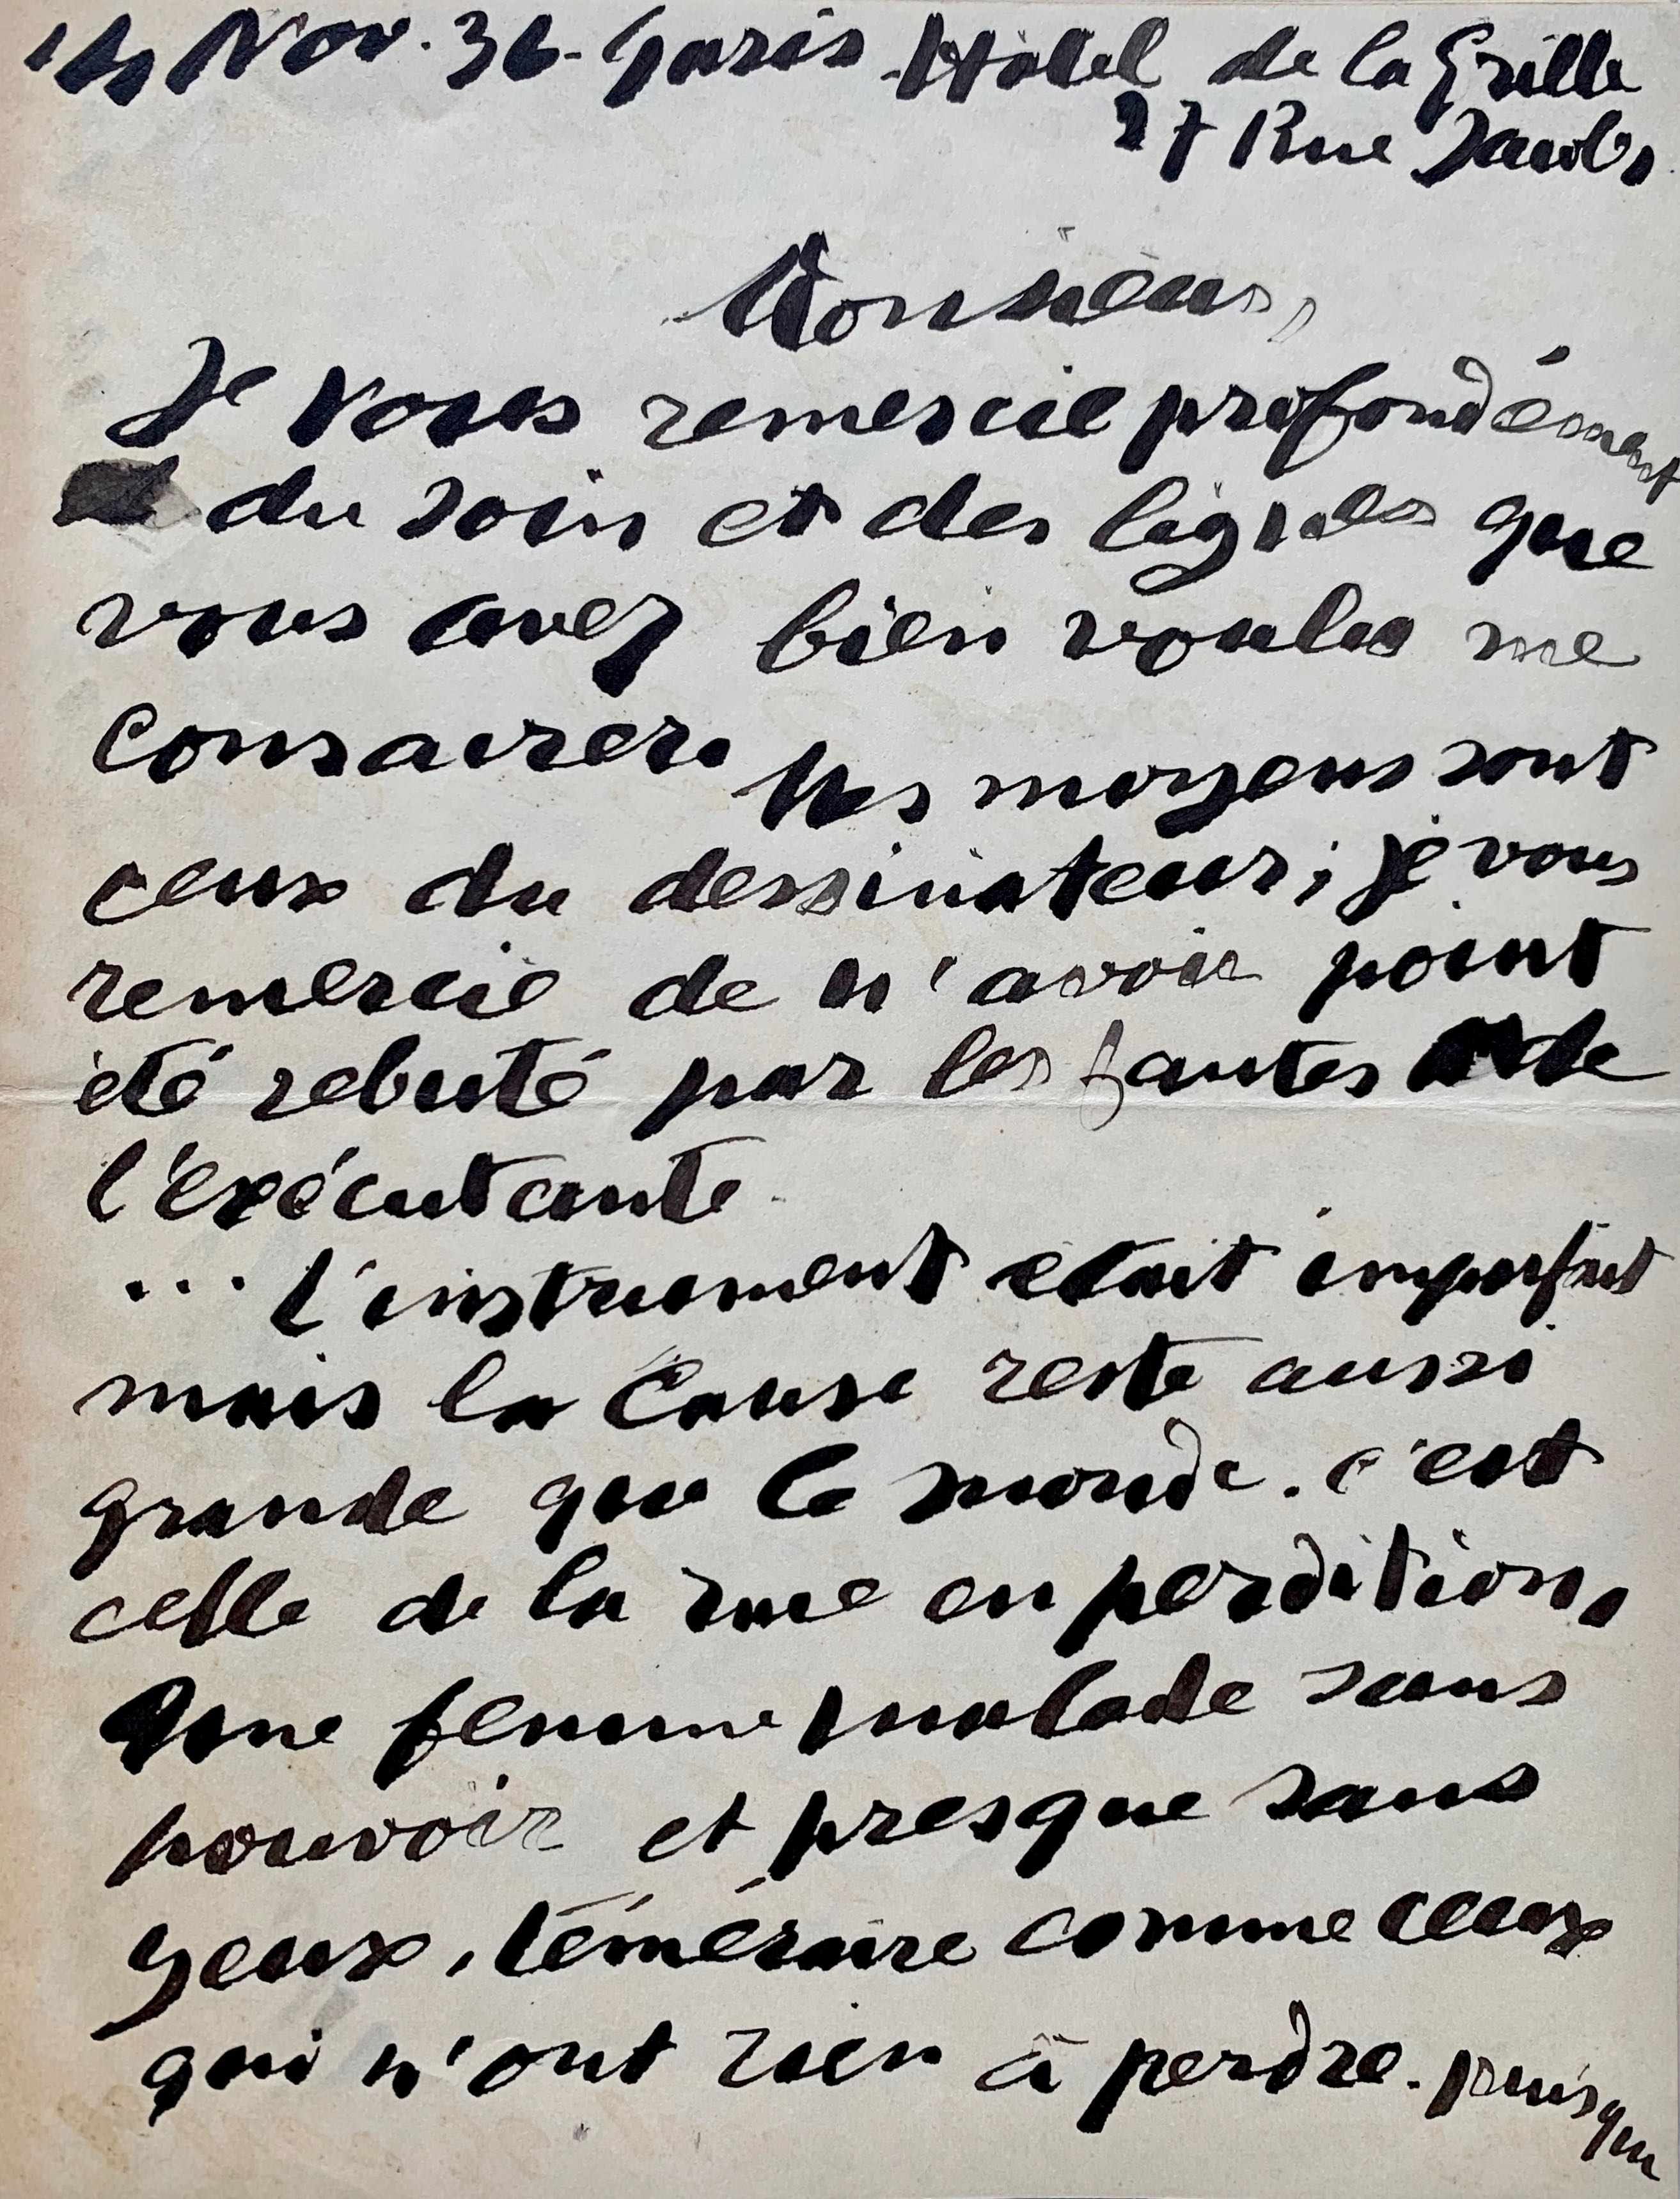 14 Nov. 36 - Paris - Hôtel de la Grille
27 Rue Jacob
Monsieur,
Je vous remercie profondément
du soin et des lignes que
vous avez bien voulu me
consacrer. Mes moyens sont
ceux du dessinateur ; je vous
remercie de n'avoir point
été rebuté par les fautes de
l'exécutante.
... l'instrument était imparfait
mais la Cause reste aussi
grande que le monde. c'est
celle de la race en perdition,
Une femme malade sans
pouvoir et presque sans
yeux, téméraire comme ceux
qui n'ont rien à perdre. puisqu